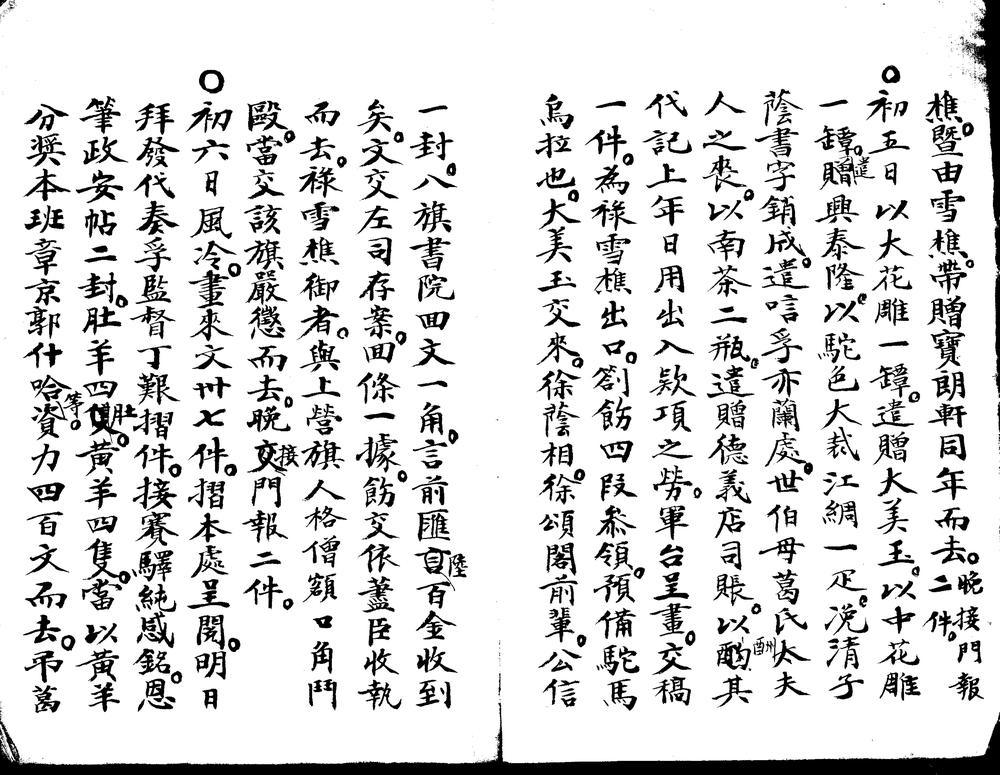 樵暨由雪樵帶贈寶朗軒同年而去晚接門報二件
○初五日以大花雕一罈遣贈大美玉以中花雕
一罈遣贈興泰隆以駝色大裁江綢一疋浼清子
蔭書字銷成遣唁孚亦蘭處世伯母葛氏太夫
人之喪以南茶二瓶遣贈德義店司賬以酬其
代記上年日用出入欵項之勞軍台呈畫交稿
一件為祿雪樵出口劄飭四段叅領預備駝馬
烏拉也大美玉交來徐蔭相徐頌閣前輩公信
一封八旗書院回文一角言前匯陸百金收到
矣文交左司存案回條一據飭交依藎臣收執
而去祿雪樵御者與上營旗人格僧額口角鬥
毆當交該旗嚴懲而去晚接門報二件
○初六日風冷畫來文卅七件摺本處呈閱明日
拜發代奏孚監督丁艱摺件接賽驛純感銘恩
筆政安帖二封肚羊四肚黃羊四隻當以黃羊
分奨本班章京郭什哈等資力四百文而去帋萬